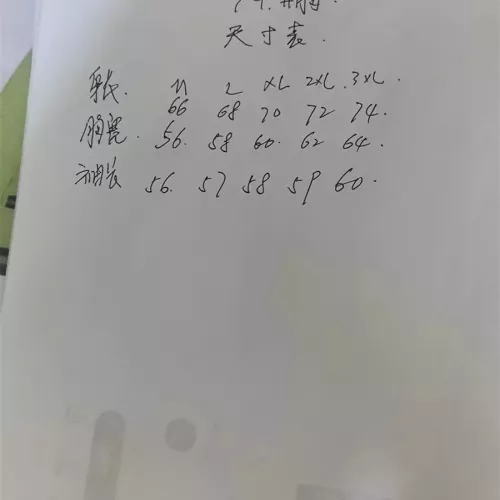 尺寸表.
衣长. M L XL 2XL. 3XL.
66 68 70 72 74.
胸宽. 56. 58 60. 62 64.
袖长 56. 57 58 59 60.